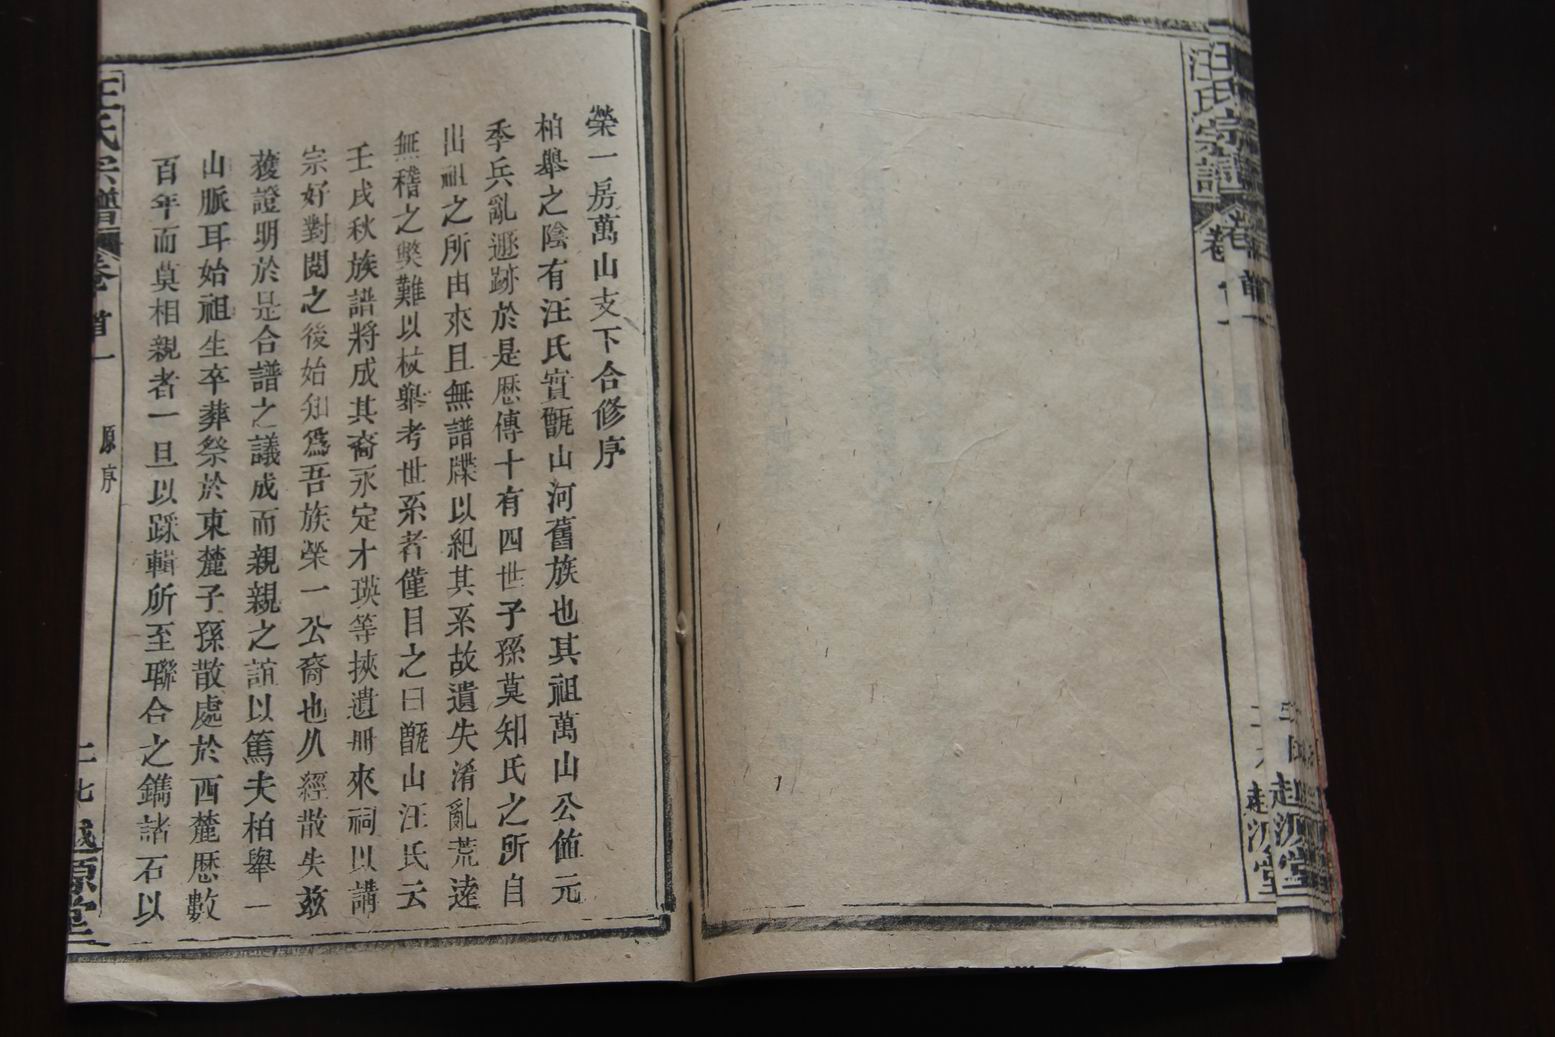 榮一房萬山支下合修序
柏舉之陰有汪氏實甑山河舊族也其祖萬山公值元
季兵亂遯跡於是歷傳十有四世子孫莫知氏之所自
出祖之所由來且無譜牒以紀其系故遺失淆亂荒遠
無稽之獘難以枚舉考世系者僅目之曰甑山汪氏云
壬戌秋族譜將成其裔永定才瑛等挾遺冊來祠以講
宗好對閱之後始知爲吾族榮一公裔也乆經散失茲
獲證明於是合譜之議成而親親之誼以篤夫柏舉一
山脈耳始祖生卒葬祭於東麓子孫散處於西麓歷數
百年而莫相親者一旦以蹂輯所至聯合之鐫諸石以
汪氏宗譜
卷首一
原序
越源堂
汪氏宗譜
卷首一
越源堂